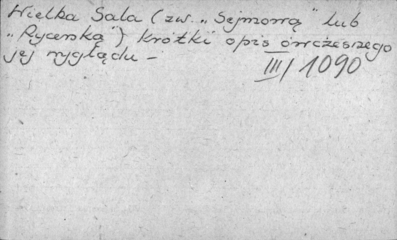 Wielka Sala (zw. „Sejmową" lub
„Rycerską") krótki opis ówczesnego
jej wyglądu –
III/1090